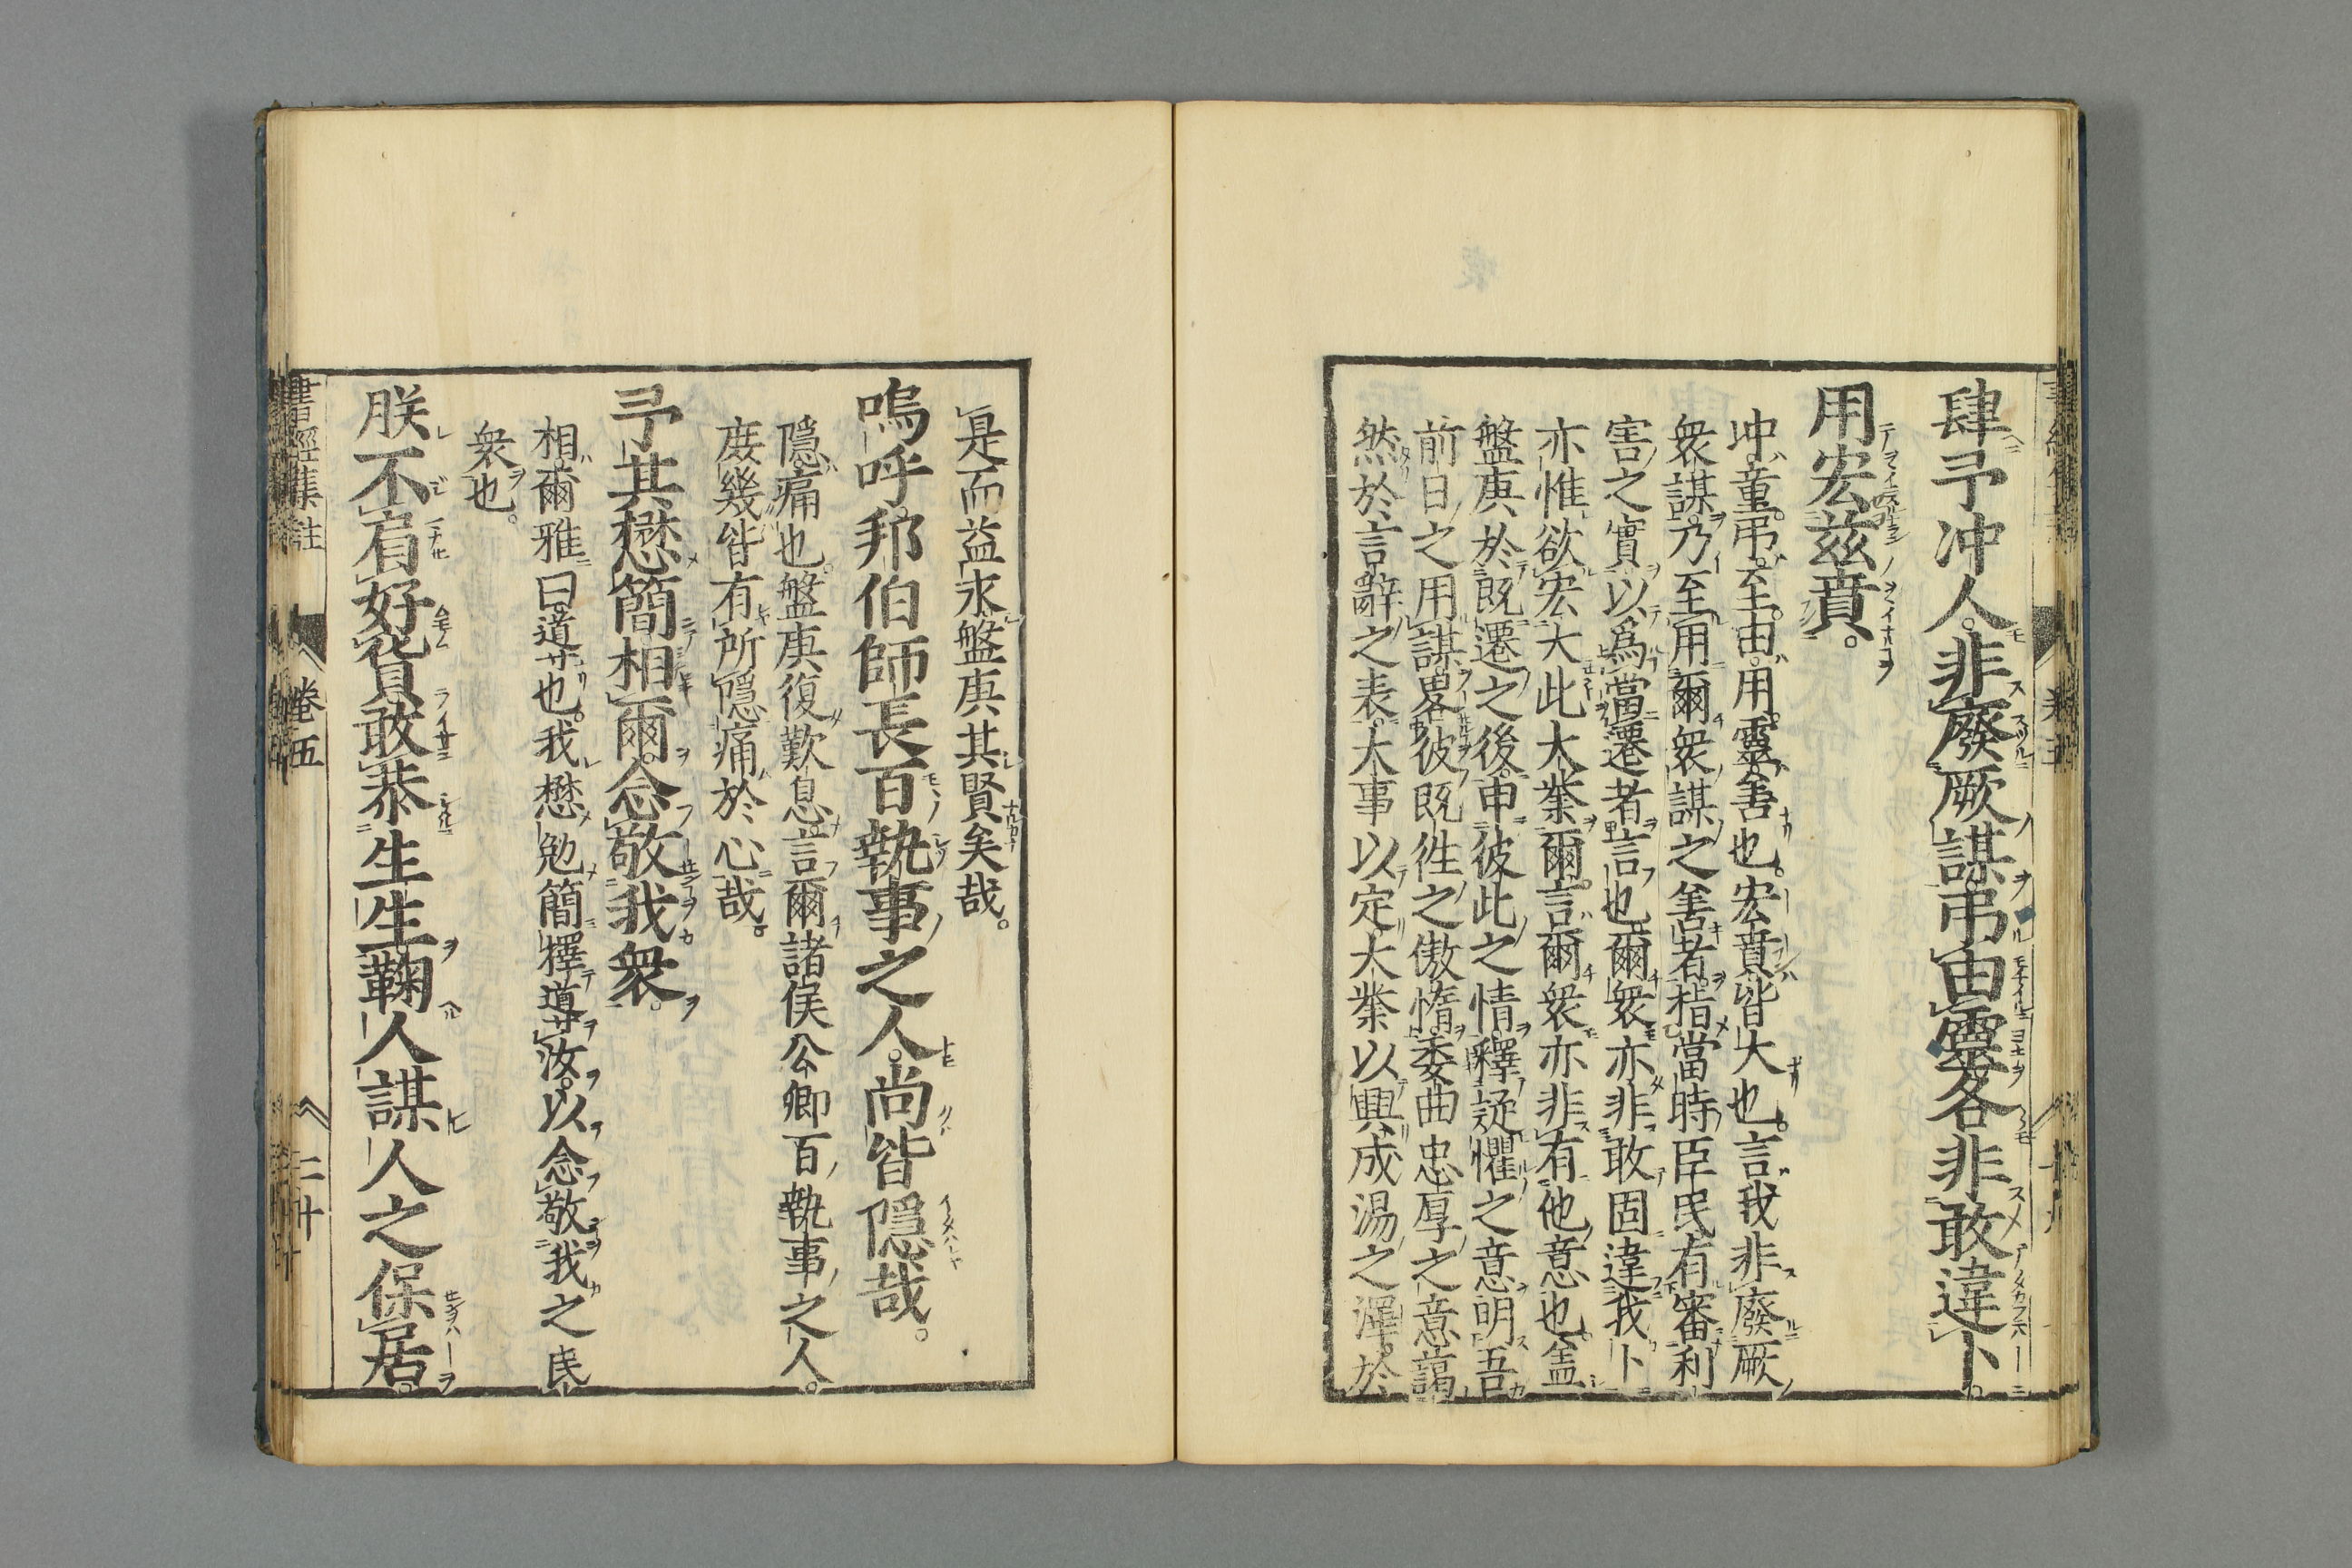 肆予冲人。非廢厥謀。弔由靈。各非敢違卜。
用宏茲賁。
冲。童。弔。至。由。用。靈。善也。宏賁皆大也。言我非廢厥
衆謀。乃至用爾衆謀之善者。指當時臣民有審利
害之實以爲當遷者言也。爾衆亦非敢固違我卜
亦惟欲宏大此大業爾。言爾衆亦非有他意也。盖
盤庚於既遷之後。申彼此之情。釋疑懼之意。明吾
前日之用謀。畧彼既徃之傲惰。委曲忠厚之意。藹
然於言辭之表。大事以定。大業以興。成湯之澤。於
是而益永。盤庚其賢矣哉。
嗚呼。邦伯師長百執事之人。尚皆隱哉。
隱。痛也。盤庚復歎息言爾諸侯公卿百執事之人。
庶幾皆有所隱痛於心哉。
予其懋簡相爾。念敬我衆。
相。爾雅曰。導也。我懋勉簡擇導汝。以念敬我之民
衆也。
朕不肩好貨。敢恭生生。鞠人謀人之保居。
書經集註 卷五 二十